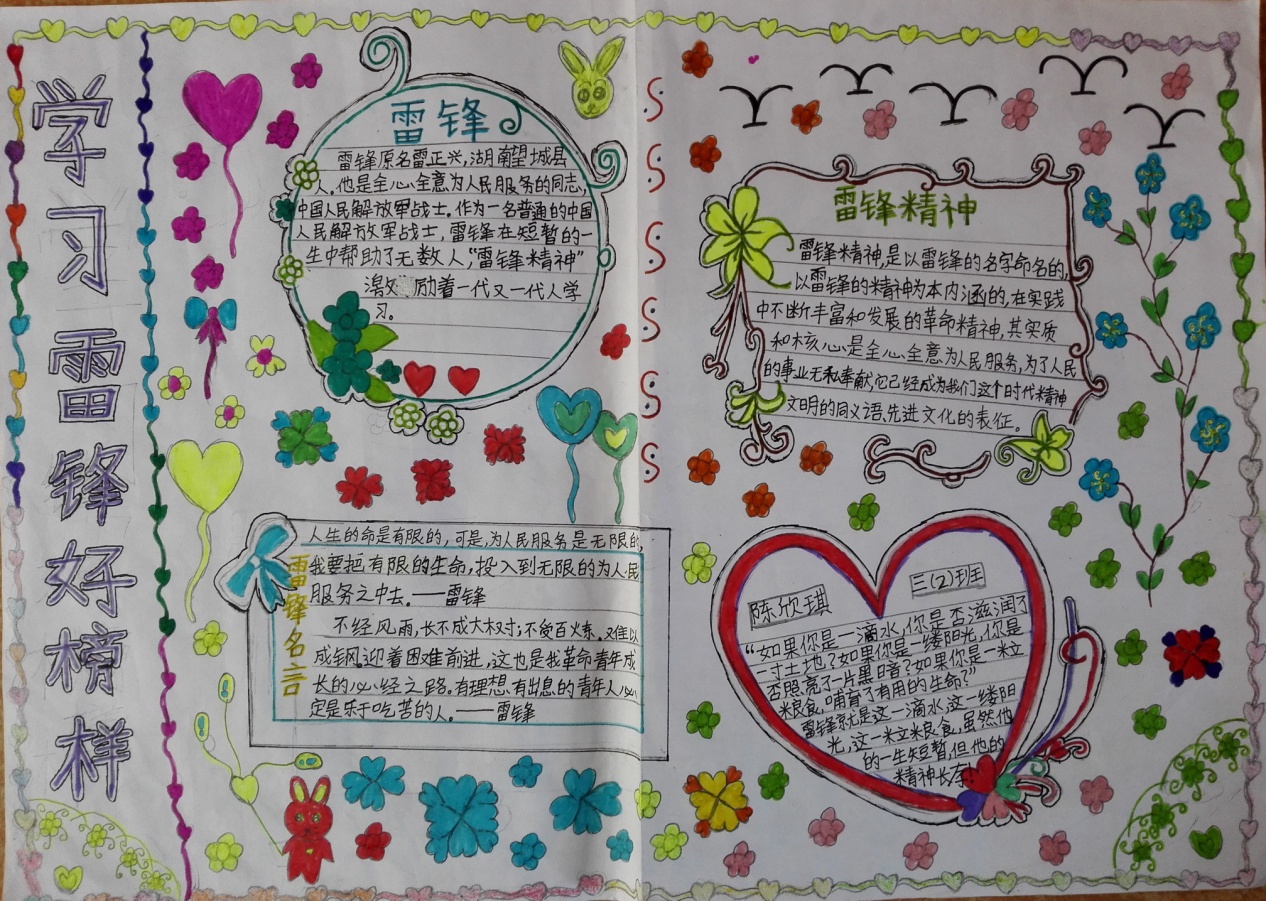 学习雷锋好榜样
雷锋
雷锋原名雷正兴,湖南望城县
人。他是全心全意为人民服务的同志,
中国人民解放军战士。作为一名普通的中国
人民解放军战士,雷锋在短暂的一
生中帮助了无数人,“雷锋精神”
激励着一代又一代人学
习。
雷锋名言
人生的命是有限的,可是,为人民服务是无限的,
我要把有限的生命,投入到无限的为人民
服务之中去。——雷锋
不经风雨,长不成大树;不受百火炼。难以
成钢。迎着困难前进,这也是我革命青年成
长的必经之路。有理想有出息的青年人必
定是乐于吃苦的人。——雷锋
雷锋精神
雷锋精神,是以雷锋的名字命名的,
以雷锋的精神为本内涵的,在实践
中不断丰富和发展的革命精神,其实质
和核心是全心全意为人民服务,为了人民
的事业无私奉献,它已经成为我们这个时代精神
文明的同义语、先进文化的表征。
三(2)班
陈欣琪
“如果你是一滴水,你是否滋润了
一寸土地?如果你是一缕阳光,你是
否照亮了一片黑暗?如果你是一粒
粮食,哺育了有用的生命?”
雷锋就是这一滴水,这一缕阳
光,这一粒粮食,虽然他
的一生短暂,但他的
精神长存